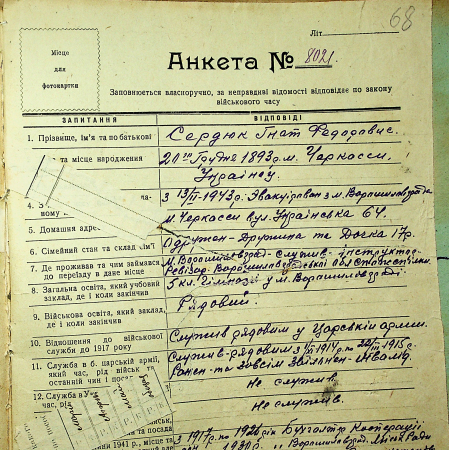 68
Літ
Місце
для
фотокартки
Анкета № 8021.
Заповнюється власноручно, за неправдиві відомості відповідає по закону
військового часу
ЗАПИТАННЯ
ВІДПОВІДІ
1. Прізвище, ім'я та по батькові
Сердюк Гнат Федорович.
та місце народження
20го Грудня 1893 р. м. Черкаси.
Українець
З 13/II-1943 р. Эвакуірован з м. Ворошиловграда
ному
5. Домашня адрес
м. Черкасси вул. Українська 64.
6. Сімейний стан та склад сім'ї
Одружен-Дружина та Дочка 17 р.
7. Де проживав та чим займався
до переїзду в дане місце
м. Ворошиловград-служив-інструктор
Ревізор. Ворошиловградської
8. Загальна освіта, який учбовий
заклад, де і коли закінчив
5 кл. Гімназії у м. Ворошиловграді.
9. Військова освіта, який заклад,
де і коли закінчив
Рядовий.
10. Відношення до військової
служби до 1917 року
Служив рядовим у Царській армии.
11. Служба в б. царській армії,
який час, рід військ та
останній чин і поса
Служив-рядовим з 1914 р. по 1915 р.
Ранен-та зовсім звільнен-Інвалід.
12. Служба в У
час, рід
Не служив.
Не служив.
та посада
ни 1941 р., місце та
З 1917 р. по 1926 рік Бухгалтер Кооперації
1930 р. " Ворошиловград. Міської Ради